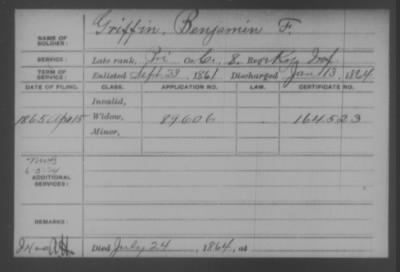 NAME OF SOLDIER: Griffin, Benjamin F.
SERVICE: Late rank, Pri Co. C, 8, Reg't Ky Inf.
TERM OF SERVICE: Enlisted Sept 23, 1861, Discharged Jan 13, 1864
DATE OF FILING. CLASS. APPLICATION NO. LAW. CERTIFICATE NO.
Invalid,
1865 Apr 15 Widow, 89606 164523
Minor,
ADDITIONAL SERVICES:
REMARKS:
Died July 24, 1864, at